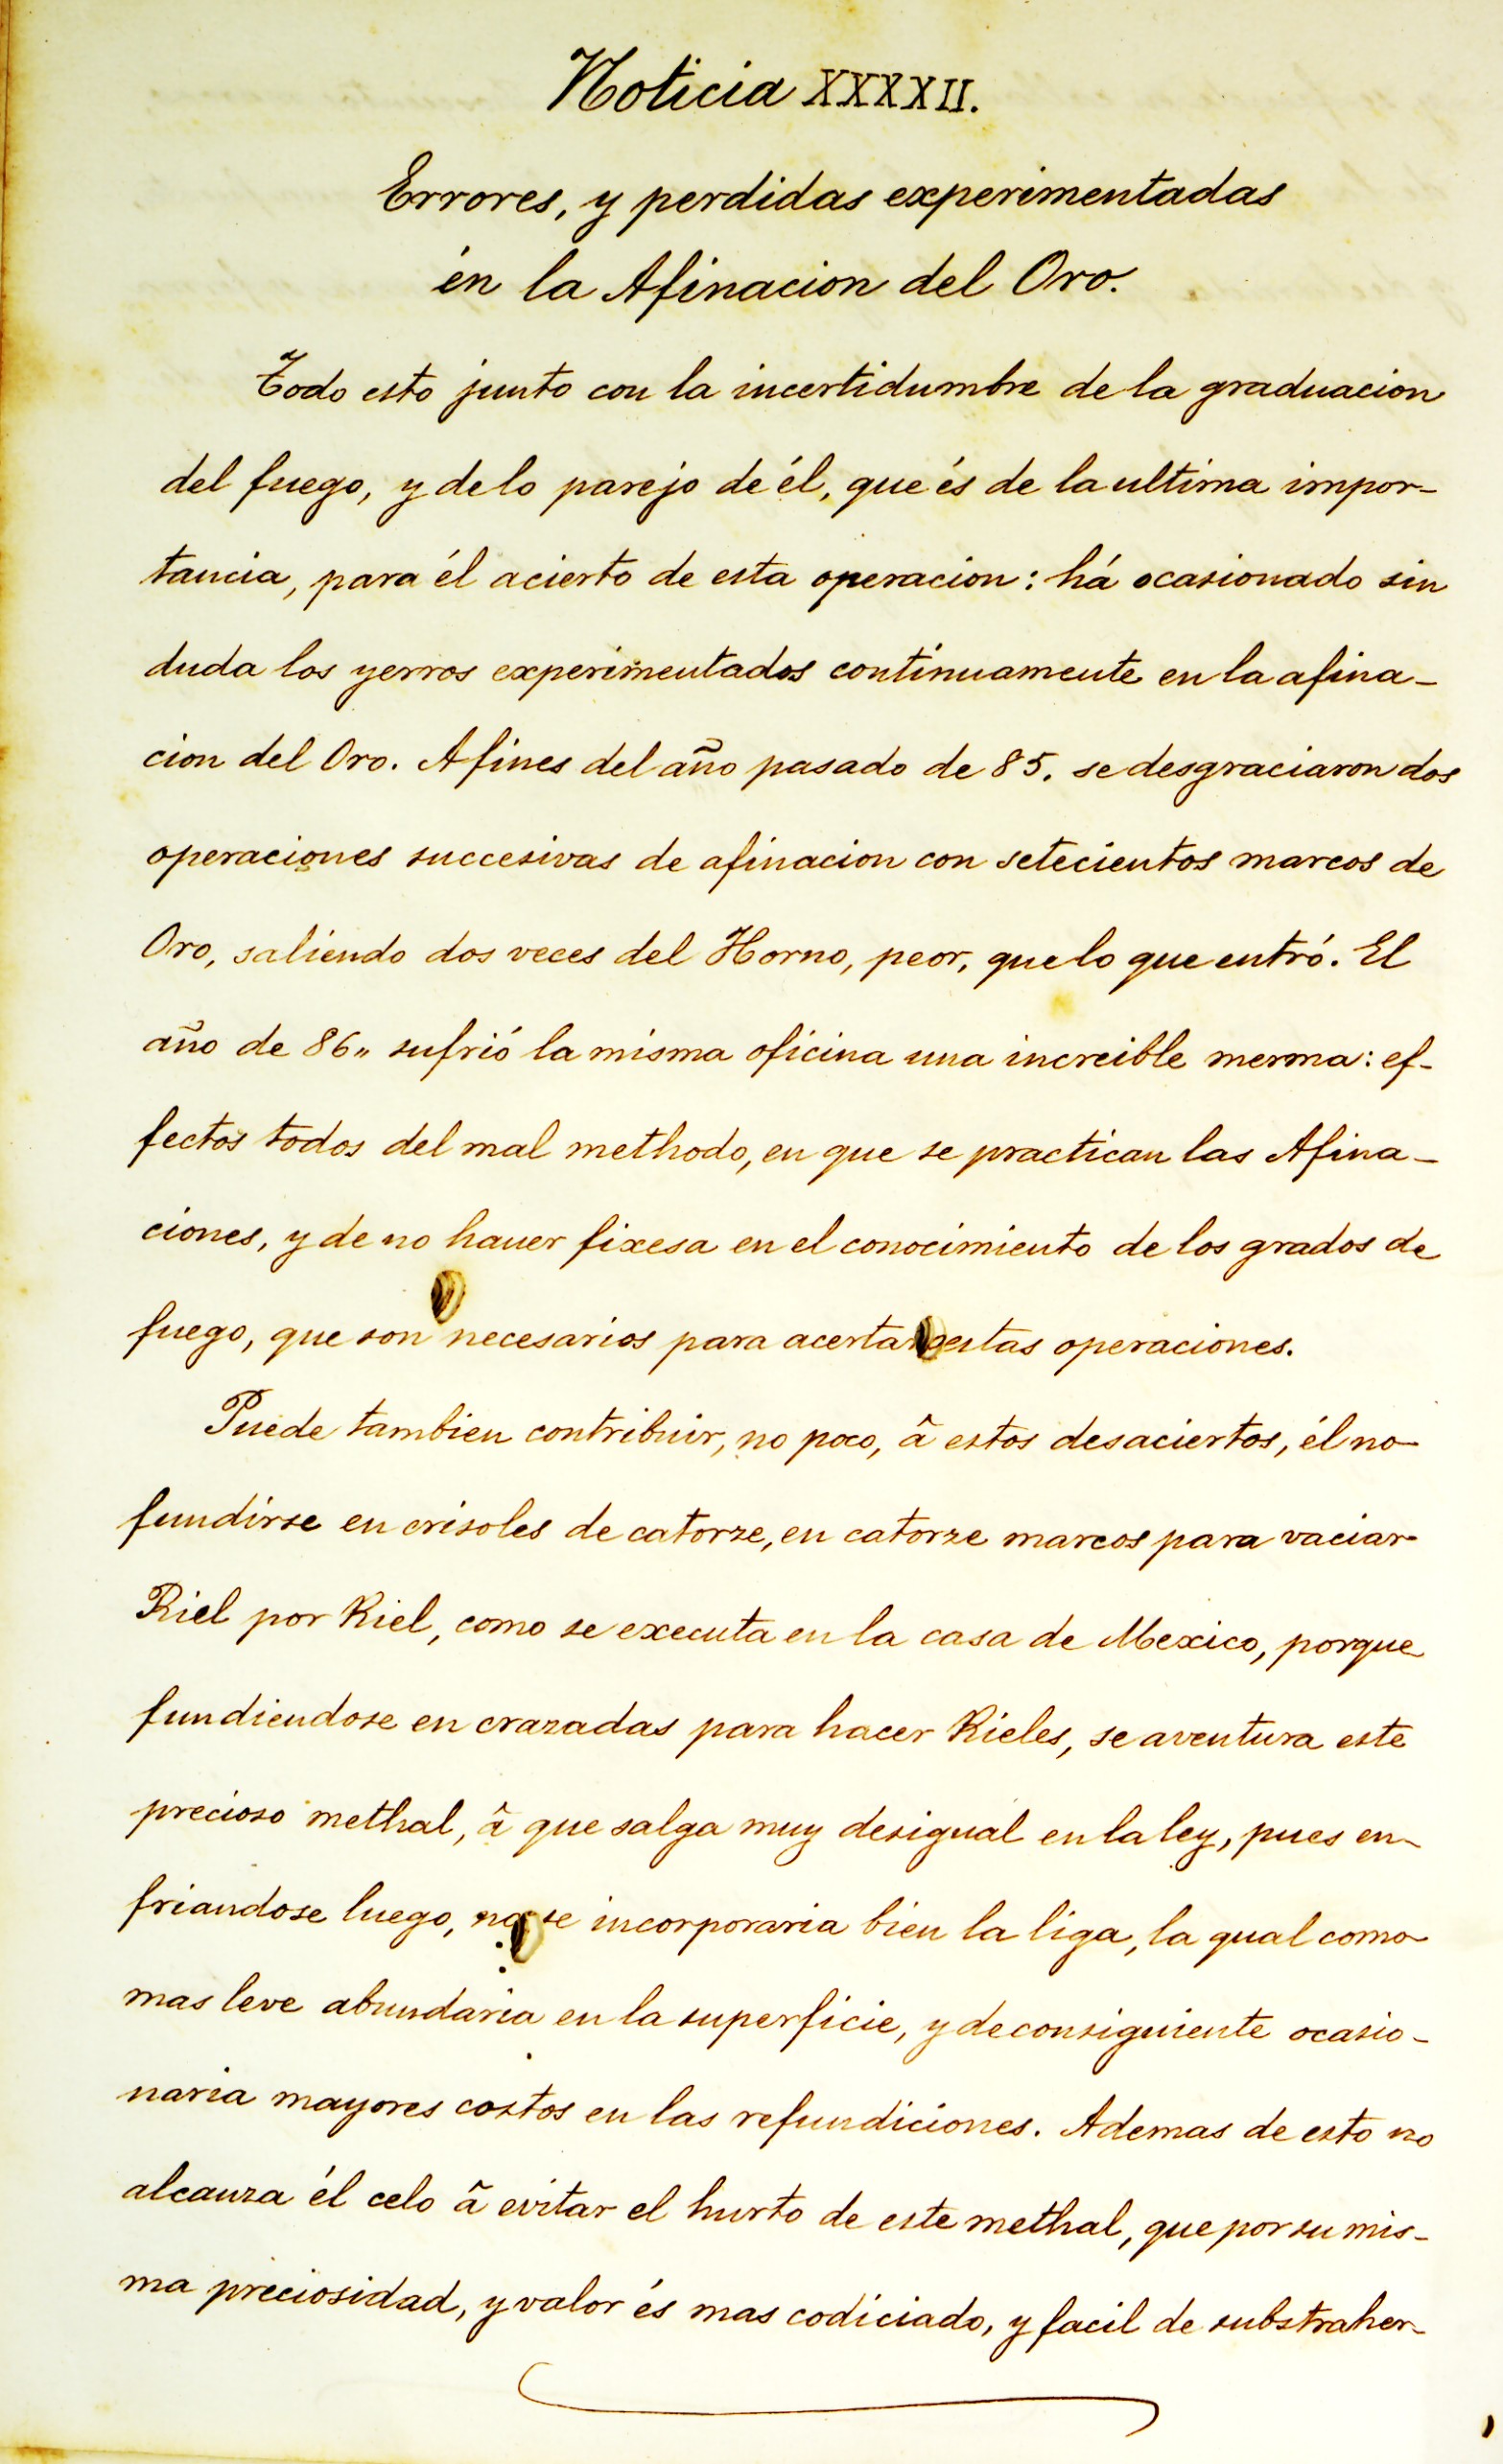 Noticia XXXXII.
Errores, y perdidas experimentadas
én la Afinacion del Oro.
Todo esto junto con la incertidumbre de la graduacion
del fuego, y de lo parejo de él, que és de la ultima impor-
tancia, para él acierto de esta operacion: há ocasionado sin
duda los yerros experimentados continuamente en la afina-
cion del Oro. A fines del año pasado de 85. se desgraciaron dos
operaciones succesivas de afinacion con setecientos marcos de
Oro, saliendo dos veces del Horno, peor, que lo que entró. El
año de 86" sufrió la misma oficina una increible merma: ef-
fectos todos del mal methodo, en que se practican las Afina-
ciones, y de no hauer fixesa en el conocimiento de los grados de
fuego, que son necesarios para acertar estas operaciones.
Puede tambien contribuir, no poco, â estos desaciertos, él no
fundirse en crisoles de catorze, en catorze marcos para vaciar
Riel por Riel, como se executa en la casa de Mexico, porque
fundiendose en crazadas para hacer Rieles, se aventura este
precioso methal, â que salga muy desigual en la ley, pues en-
friandose luego, no se incorporaria bien la liga, la qual como
mas leve abundaria en la superficie, y de consiguiente ocasio-
naria mayores costos en las refundiciones. Ademas de esto no
alcanza él celo â evitar el hurto de este methal, que por su mis-
ma preciosidad, y valor és mas codiciado, y facil de substraher-